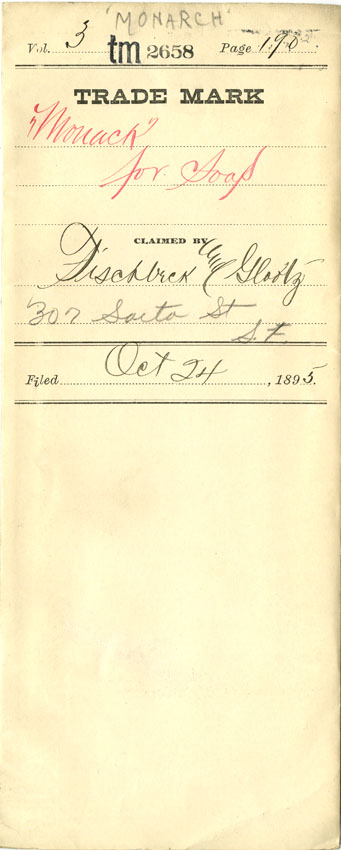 'MONARCH'
Vol. 3 tm 2658 Page 190
TRADE MARK
"Monack"
for Soap
CLAIMED BY
Fischbeck and Glootz
307 Saita St
S.f
Filed Oct 24, 1895.